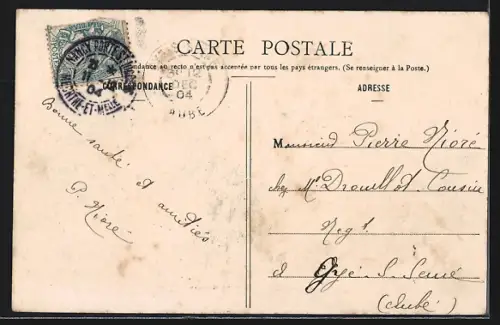 CARTE POSTALE
ndance au recto n'est pas acceptée par tous les pays étrangers. (Se renseigner à la Poste)
CORRESPONDANCE
ADRESSE
NANCY PORTE ST
04
MEURTHE-ET-MLLE
DEC
04
AUBE
Bonne santé
et amitiés
P. Nioré
Monsieur Pierre Nioré
chez Mr Drouillot Cousin
Negt
à Gyé S. Seine
(Aube)